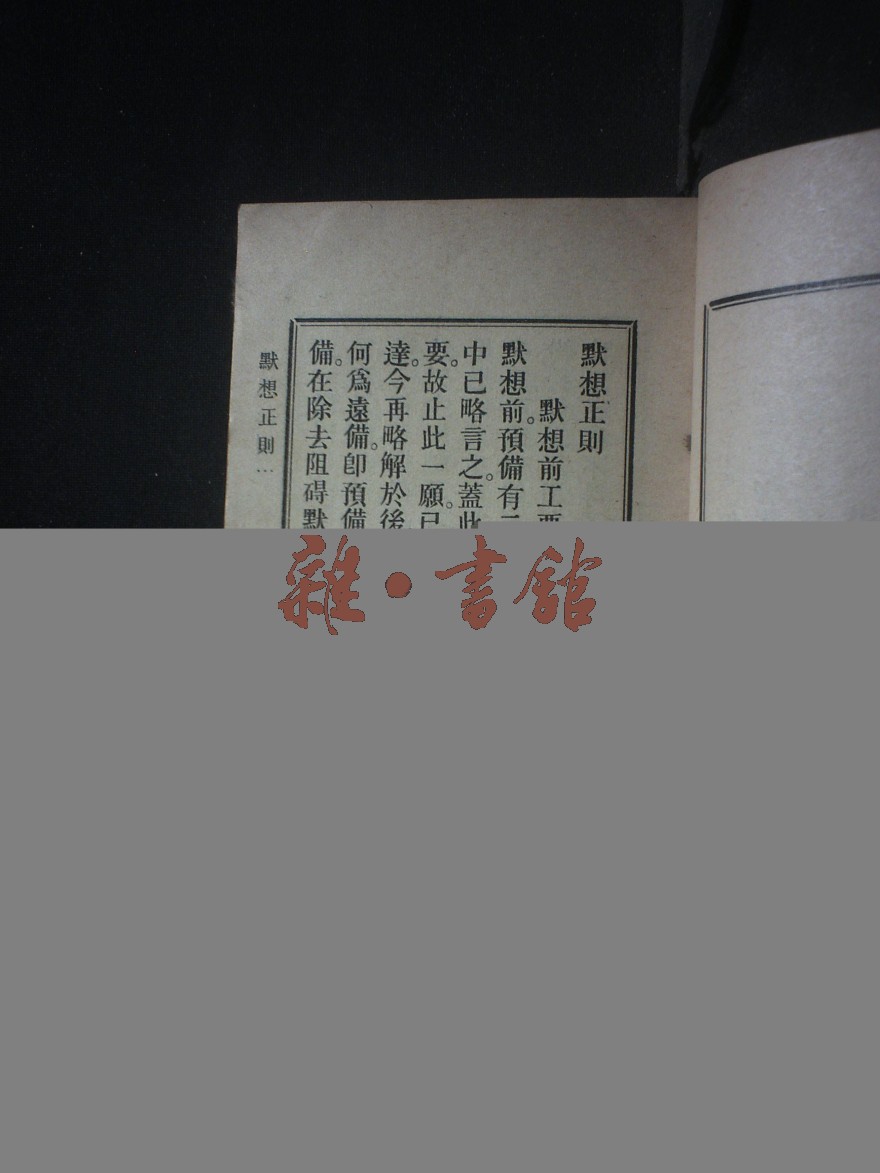 默想正則
默想前工
默想前。預備有
中已略言之。蓋
要。故止此一願。已
達。今再略解於後
何爲遠備。卽預備
備。在除去阻碍默
默想正則…
雜·書館